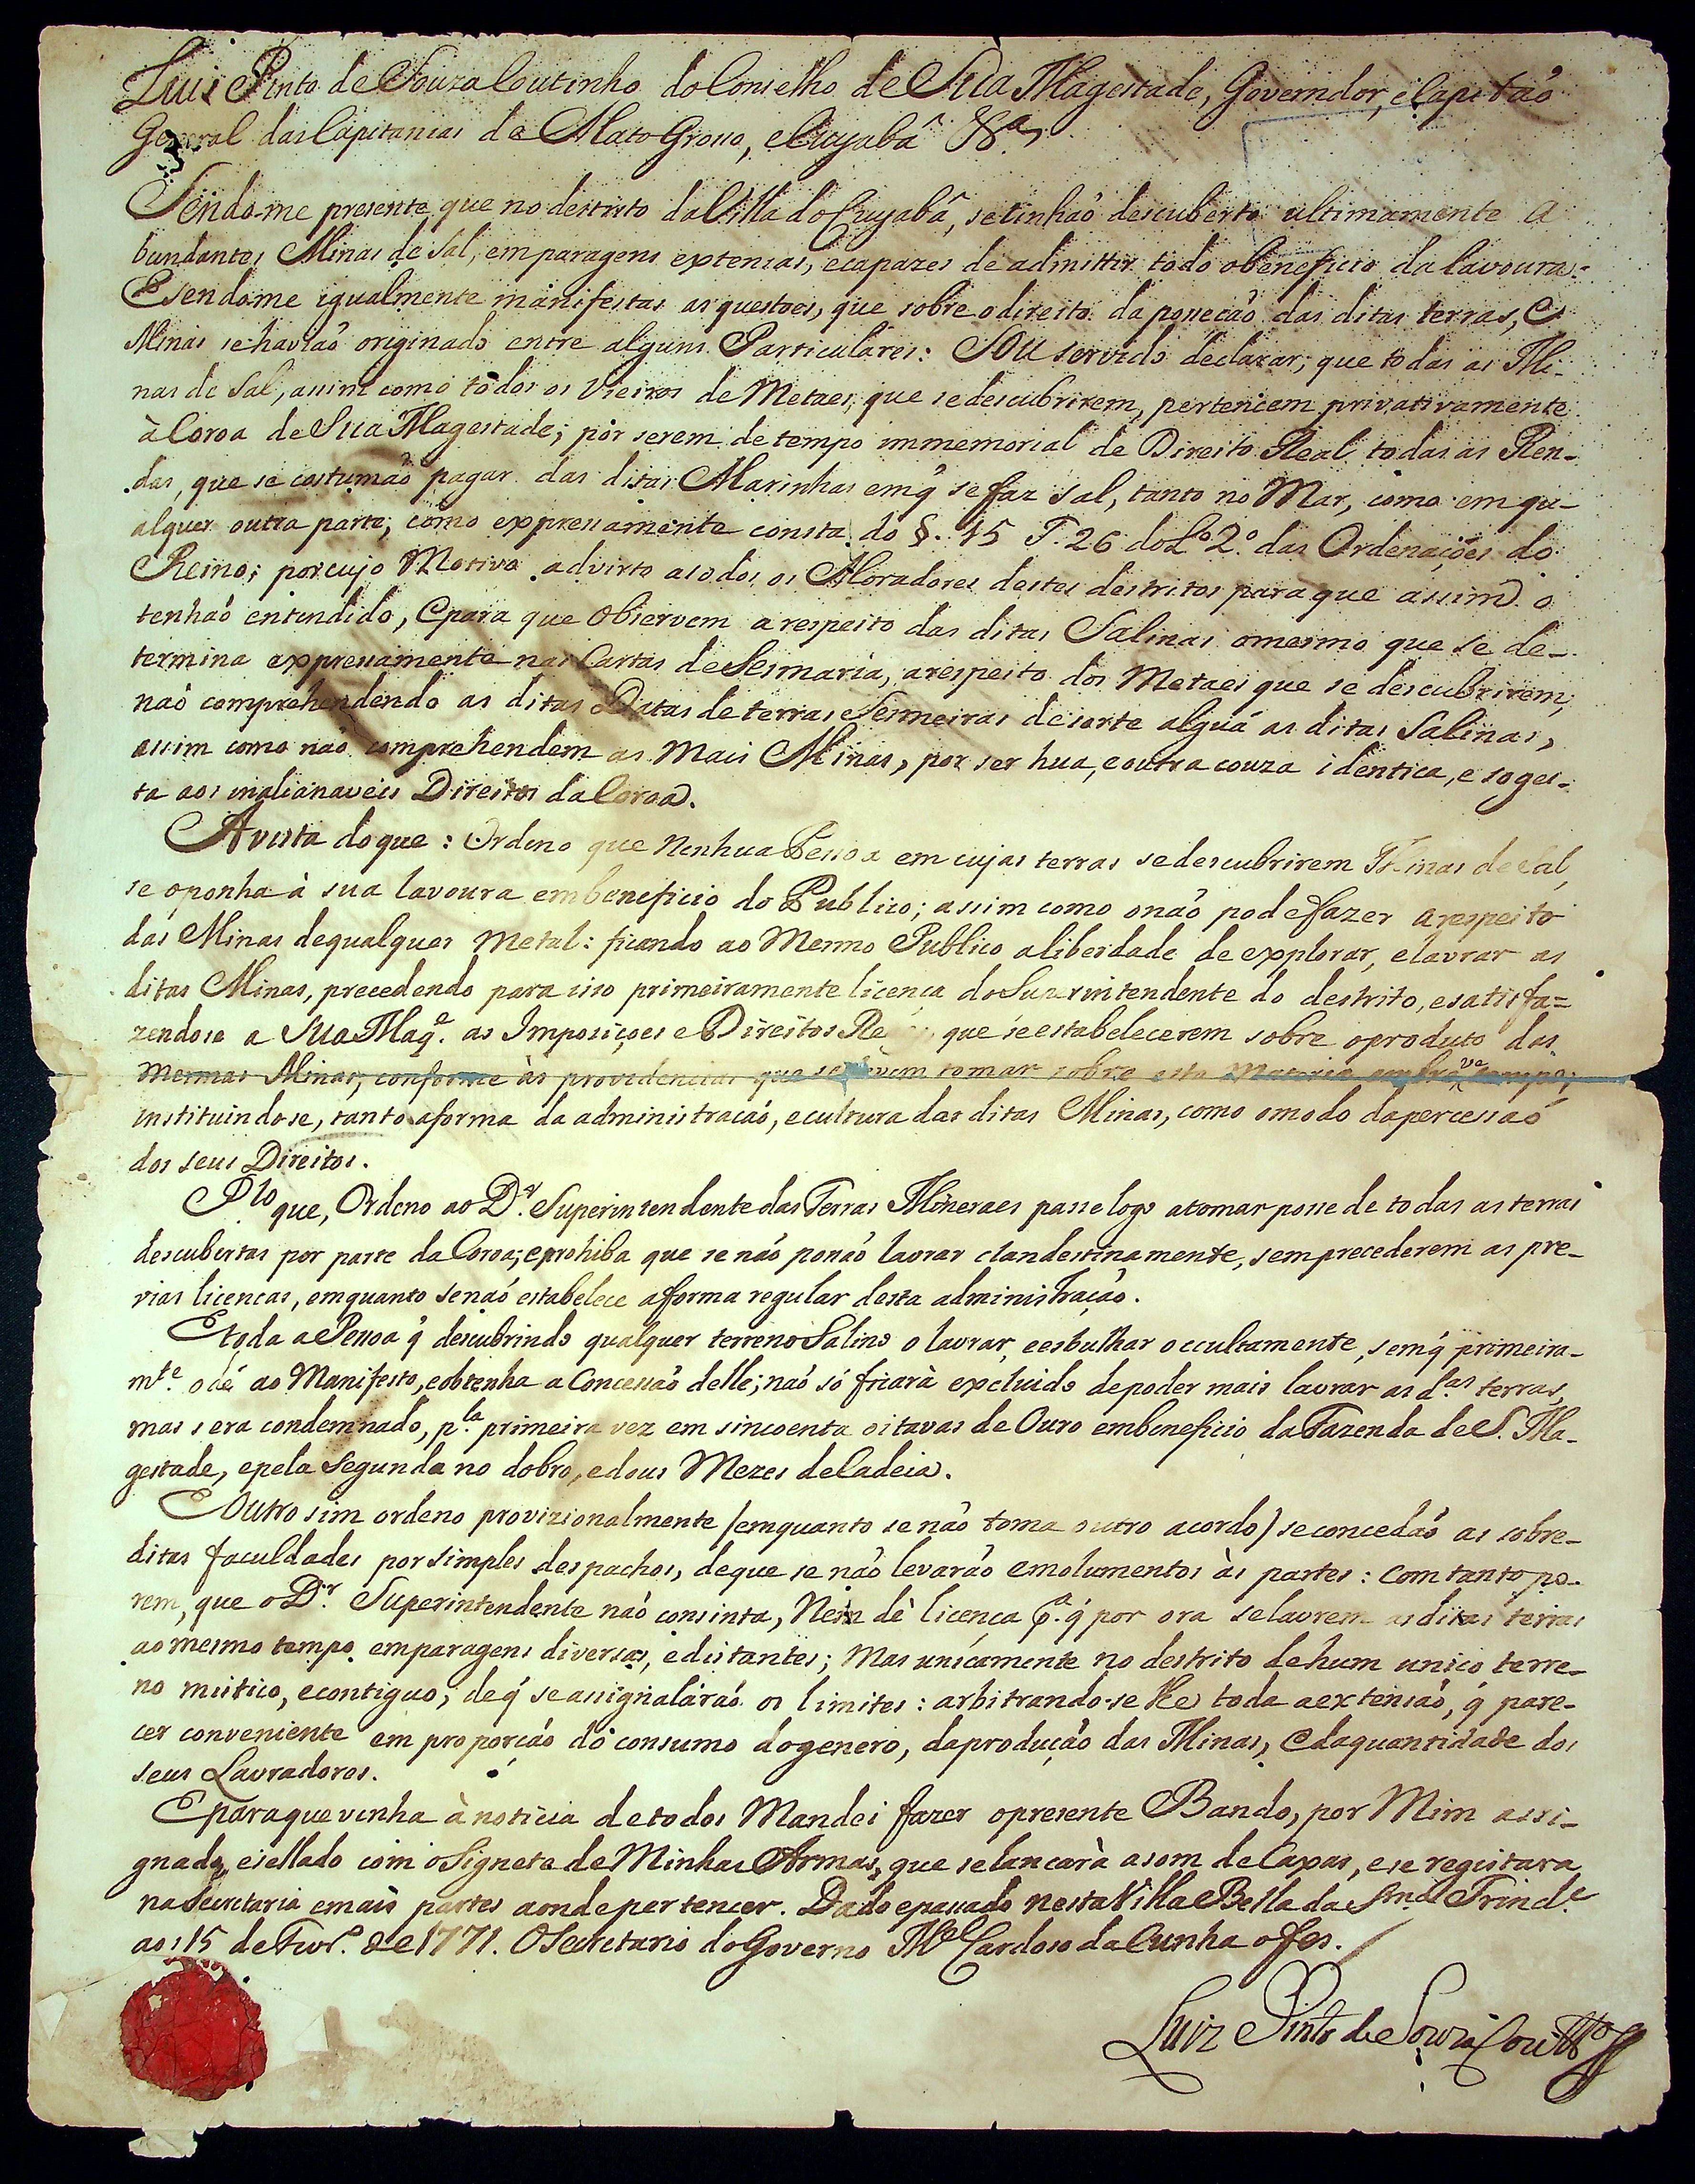 Luis Pinto de Souza Coutinho do Conselho de Sua Magestade, Governdor, e Capitaõ
General das Capitanias de Mato Grosso, e Cuyabâ &ª
Sendo-me presente, que no destrito da Villa do Cuyabâ, se tinhaõ descuberto ultimamente a
bundantes Minas de Sal, em paragens extensas, e capazes de admittir todo o beneficio da lavoura:
E sendome igualmente manifestas as questoes, que sobre o direito da possecaõ das ditas terras, e
Minas se haviaõ originado entre alguns Particulares: Sou servido declarar, que todas as Mi-
nas de Sal, assim como todos os Vieiros de Metaes, que se descubrirem, pertencem privativamente
à Coroa de Sua Magestade; por serem de tempo immemorial de Direito Real todas as Ren-
das, que se costumaõ pagar das ditas Marinhas em q̃ se faz sal, tanto no Mar, como em qu-
alquer outra parte, como expressamente consta do §. 15 T. 26 do Lº 2.º das Ordenações do
Reino; por cujo Motivo advirto a todos os Moradores destes destritos para que assim o
tenhaõ entendido, e para que observem a respeito das ditas Salinas o mesmo que se de-
termina expressamente nas Cartas de Sesmaria, a respeito dos Metaes que se descubrirem;
naõ comprehendendo as ditas Datas de terras e Sesmeiras de sorte alguã as ditas Salinas,
assim como naõ comprehendem as mais Minas, por ser hua, e outra couza identica, e soge-
ta aos inalianaveis Direitos da Coroa.
A vista do que: Ordeno que Nenhua Pessoa em cujas terras se descubrirem Minas de Sal,
se oponha à sua lavoura em beneficio do Publico; assim como o naõ pode fazer a respeito
das Minas de qualquer Metal: ficando ao Mesmo Publico a liberdade de explorar, e lavrar as
ditas Minas, precedendo para isso primeiramente licença do Superintendente do destrito, e satisfa=
zendose a Sua Magᵉ. as Imposiçoes e Direitos que se estabelecerem sobre o produto das
mesmas Minas, conforme às providencias que se devem tomar sobre esta Materia em breve tempo;
instituindose, tanto a forma da administracaõ, e cultura das ditas Minas, como o modo da percessaõ
dos seus Direitos.
Plo que, Ordeno ao Dr. Superintendente das Terras Mineraes passe logo a tomar posse de todas as terras
descubertas por parte da Coroa; e prohiba que se naõ possaõ lavrar clandestinamente, sem precederem as pre-
vias licencas, emquanto se naõ estabelece a forma regular desta administraçaõ.
E toda a Pessoa q̃ descubrindo qualquer terreno Salino o lavrar, e esbulhar occultamente, sem q̃ primeira-
mte. o dê ao Manifesto, e obtenha a Concessaõ delle; naõ só ficarà excluido de poder mais lavrar as d.as terras,
mas sera condemnado, p.la primeira vez em sincoenta oitavas de Ouro em beneficio da Fazenda de S. Ma-
gestade, e pela Segunda no dobro, e dous Mezes de Cadeia.
Outro sim ordeno provizionalmente (emquanto se naõ toma outro acordo) se concedaõ as sobre-
ditas faculdades por simples despachos, de que se naõ levaraõ emolumentos às partes: com tanto po-
rem, que o Dr. Superintendente naõ consinta, Nem dê licença pª. q̃ por ora se lavrem as ditas terras
ao mesmo tempo em paragens diversas, e distantes; Mas unicamente no destrito de hum unico terre-
no mistico, e contiguo, de q̃ se assignalaraõ os limites: arbitrando-se lhe toda a extensaõ, q̃ pare-
cer conveniente em proporçaõ do consumo do genero, da produçaõ das Minas, e da quantidade dos
seus Lavradores.
E para que venha à noticia de todos Mandei fazer o presente Bando, por Mim assi-
gnado, e sellado com o Signete de Minhas Armas, que se lancarà a som de Caxas, e se registara
na Secretaria e mais partes aonde pertencer. Dado e passado nesta Villa Bella da Smª Trindᵉ
aos 15 de Fevr.º de 1771. O Secretario do Governo Mel Cardoso da Cunha o fes.
Luiz Pinto de Souza Coutº